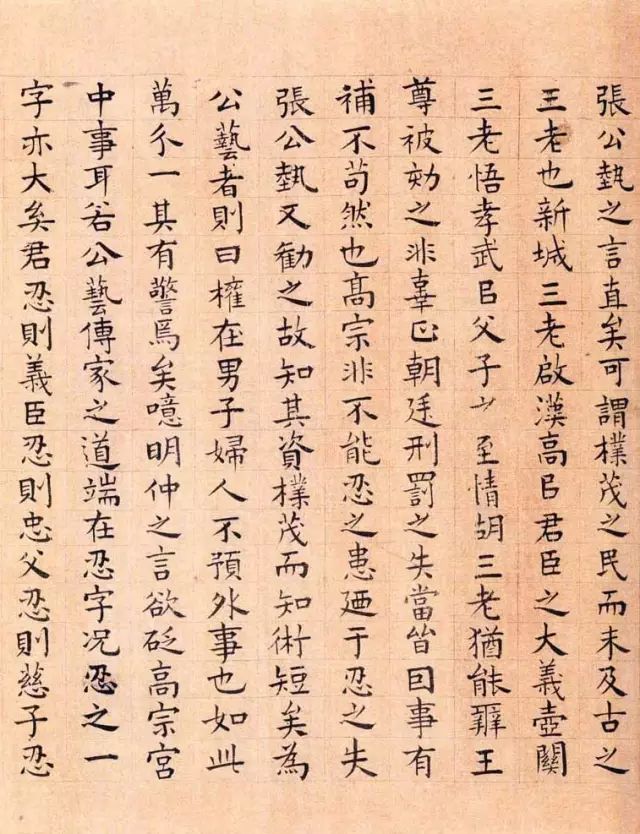 張公埶之言直矣可謂樸茂之民而未及古之
王老也新城三老啟漢高㠯君臣之大義壺關
三老悟孝武㠯父子㞢至情胡三老猶能辭王
尊被劾之非辜正朝廷刑罰之失當皆因事有
補不苟然也髙宗非不能忍之患廼于忍之失
張公埶又勸之故知其資樸茂而知術短矣為
公藝者則曰權在男子婦人不預外事也如此
萬分一其有警焉矣噫明仲之言欲砭高宗宮
中事耳若公藝傳家之道端在忍字况忍之一
字亦大矣君忍則義臣忍則忠父忍則慈子忍